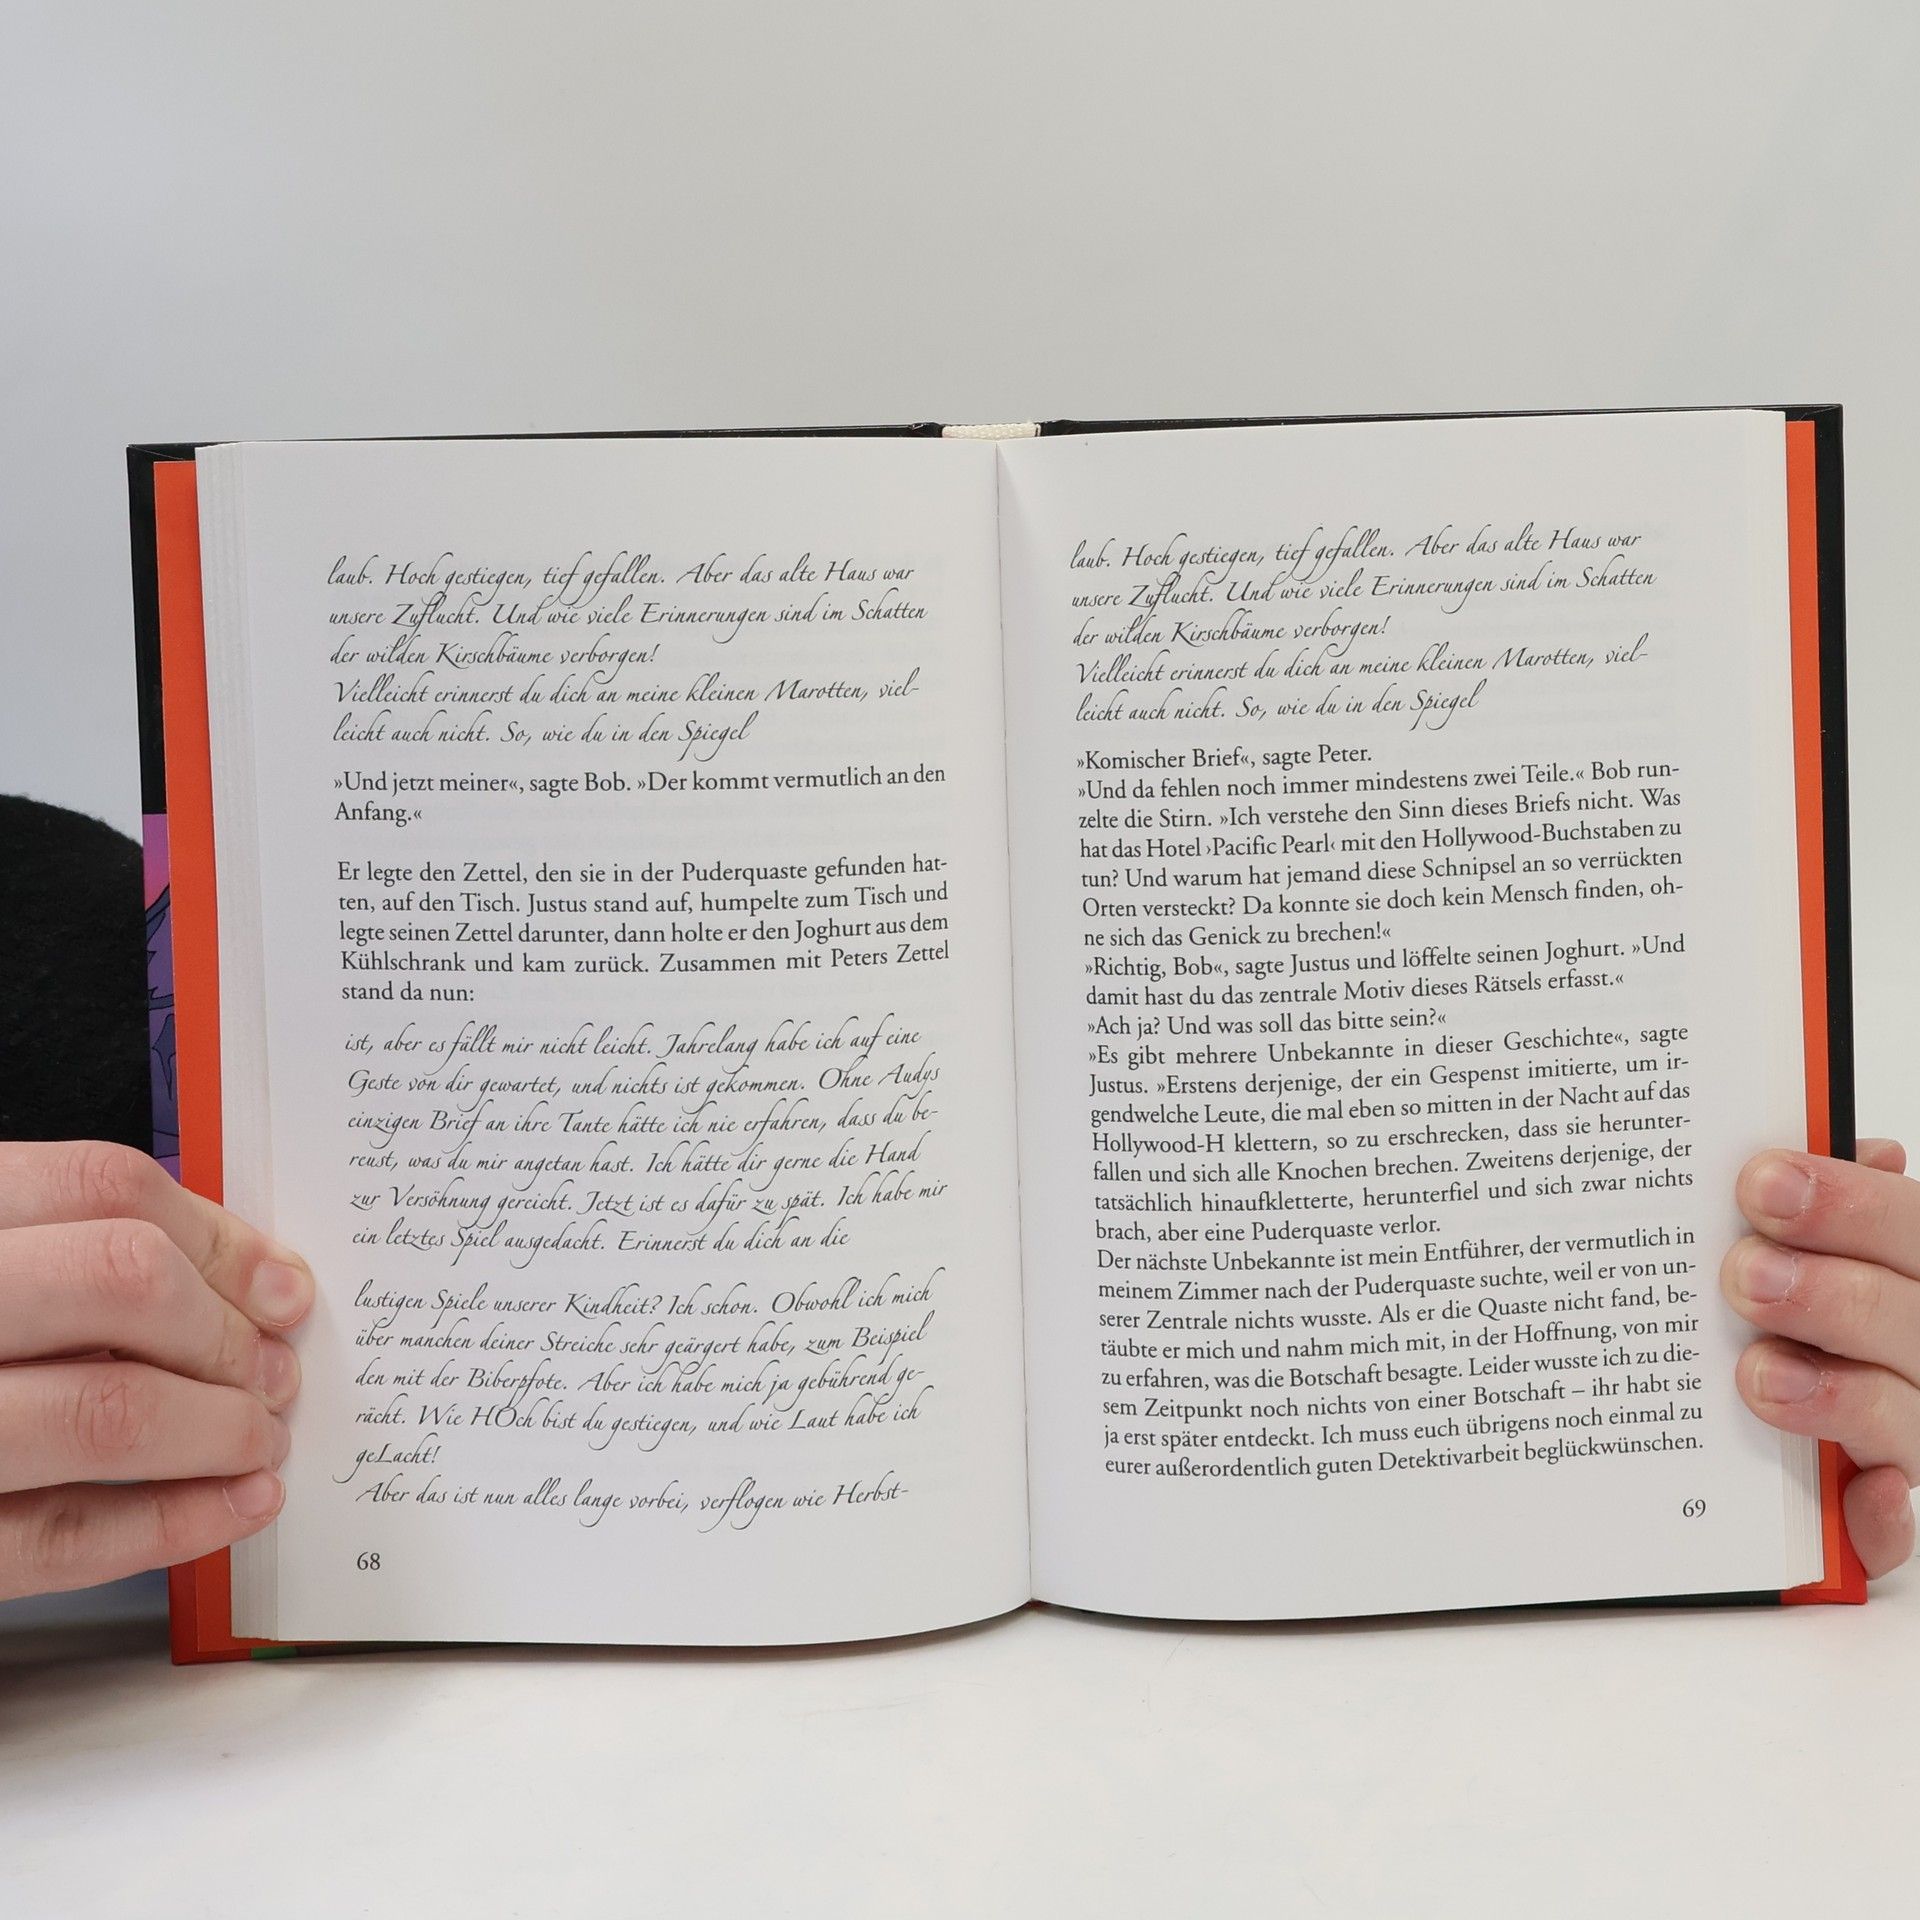 laub. Hoch gestiegen, tief gefallen. Aber das alte Haus war
unsere Zuflucht. Und wie viele Erinnerungen sind im Schatten
der wilden Kirschbäume verborgen!
Vielleicht erinnerst du dich an meine kleinen Marotten, viel-
leicht auch nicht. So, wie du in den Spiegel
»Und jetzt meiner«, sagte Bob. »Der kommt vermutlich an den
Anfang.«
Er legte den Zettel, den sie in der Puderquaste gefunden hat-
ten, auf den Tisch. Justus stand auf, humpelte zum Tisch und
legte seinen Zettel darunter, dann holte er den Joghurt aus dem
Kühlschrank und kam zurück. Zusammen mit Peters Zettel
stand da nun:
ist, aber es fällt mir nicht leicht. Jahrelang habe ich auf eine
Geste von dir gewartet, und nichts ist gekommen. Ohne Audys
einzigen Brief an ihre Tante hätte ich nie erfahren, dass du be-
reust, was du mir angetan hast. Ich hätte dir gerne die Hand
zur Versöhnung gereicht. Jetzt ist es dafür zu spät. Ich habe mir
ein letztes Spiel ausgedacht. Erinnerst du dich an die
lustigen Spiele unserer Kindheit? Ich schon. Obwohl ich mich
über manchen deiner Streiche sehr geärgert habe, zum Beispiel
den mit der Biberpfote. Aber ich habe mich ja gebührend ge-
rächt. Wie HOch bist du gestiegen, und wie Laut habe ich
geLacht!
Aber das ist nun alles lange vorbei, verflogen wie Herbst-
68
laub. Hoch gestiegen, tief gefallen. Aber das alte Haus war
unsere Zuflucht. Und wie viele Erinnerungen sind im Schatten
der wilden Kirschbäume verborgen!
Vielleicht erinnerst du dich an meine kleinen Marotten, viel-
leicht auch nicht. So, wie du in den Spiegel
»Komischer Brief«, sagte Peter.
»Und da fehlen noch immer mindestens zwei Teile.« Bob run-
zelte die Stirn. »Ich verstehe den Sinn dieses Briefs nicht. Was
hat das Hotel ›Pacific Pearl‹ mit den Hollywood-Buchstaben zu
tun? Und warum hat jemand diese Schnipsel an so verrückten
Orten versteckt? Da konnte sie doch kein Mensch finden, oh-
ne sich das Genick zu brechen!«
»Richtig, Bob«, sagte Justus und löffelte seinen Joghurt. »Und
damit hast du das zentrale Motiv dieses Rätsels erfasst.«
»Ach ja? Und was soll das bitte sein?«
»Es gibt mehrere Unbekannte in dieser Geschichte«, sagte
Justus. »Erstens derjenige, der ein Gespenst imitierte, um ir-
gendwelche Leute, die mal eben so mitten in der Nacht auf das
Hollywood-H klettern, so zu erschrecken, dass sie herunter-
fallen und sich alle Knochen brechen. Zweitens derjenige, der
tatsächlich hinaufkletterte, herunterfiel und sich zwar nichts
brach, aber eine Puderquaste verlor.
Der nächste Unbekannte ist mein Entführer, der vermutlich in
meinem Zimmer nach der Puderquaste suchte, weil er von un-
serer Zentrale nichts wusste. Als er die Quaste nicht fand, be-
täubte er mich und nahm mich mit, in der Hoffnung, von mir
zu erfahren, was die Botschaft besagte. Leider wusste ich zu die-
sem Zeitpunkt noch nichts von einer Botschaft – ihr habt sie
ja erst später entdeckt. Ich muss euch übrigens noch einmal zu
eurer außerordentlich guten Detektivarbeit beglückwünschen.
69